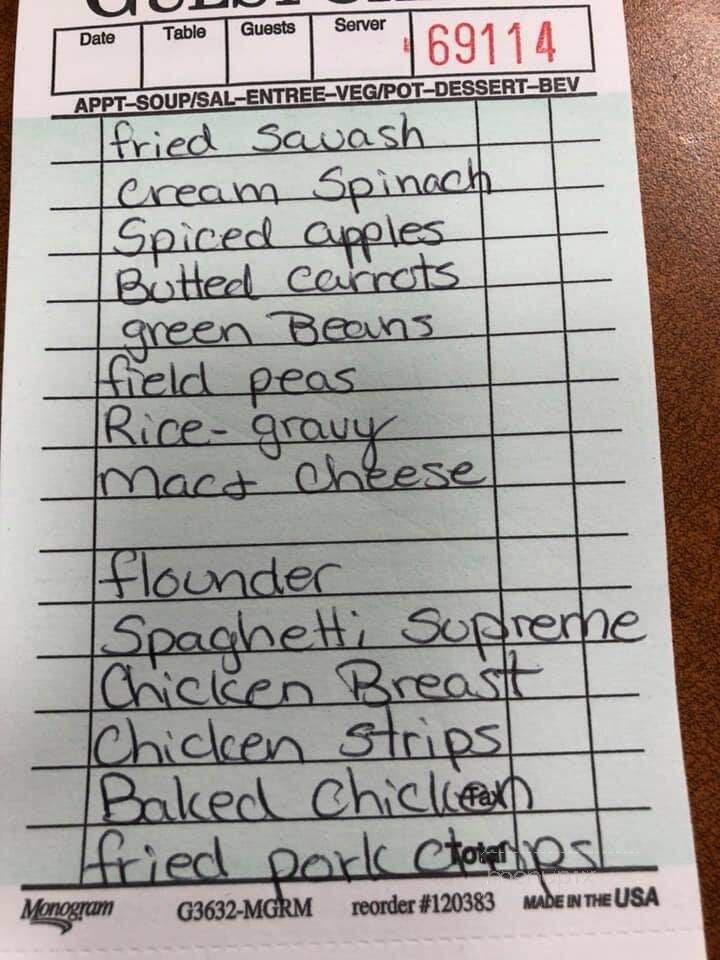 Date Table Guests Server 69114
APPT–SOUP/SAL–ENTREE–VEG/POT–DESSERT–BEV
fried Sauash
cream Spinach
Spiced apples
Butted carrots
green Beans
field peas
Rice- gravy
Mac+ Cheese
flounder
Spaghetti Supreme
Chicken Breast
Chicken strips
Baked Chicken
Tax
fried pork
Total
Monogram G3632-MGRM reorder #120383 MADE IN THE USA